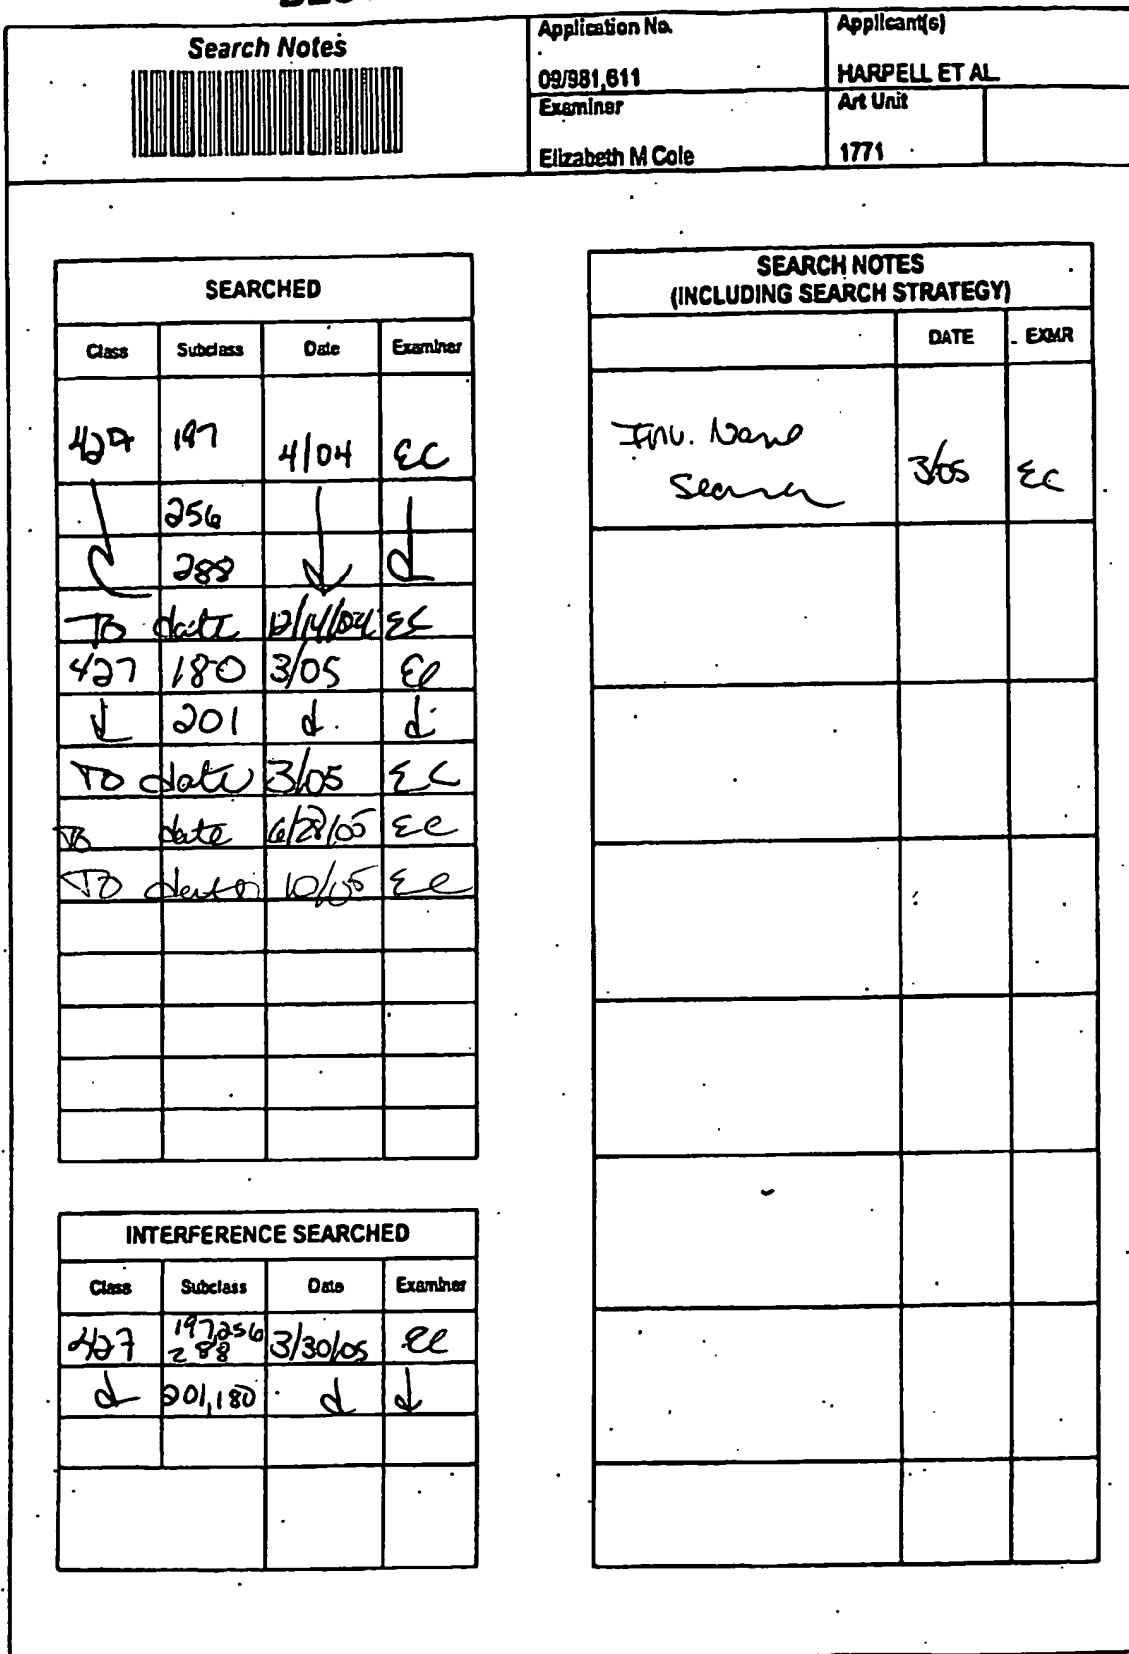 Search Notes
Application No.
09/981,611
Applicant(s)
HARPELL ET AL.
Examiner
Elizabeth M Cole
Art Unit
1771
SEARCHED
Class Subclass Date Examiner
427 197 4/04 EC
256
288
To date 12/14/04 EC
427 180 3/05 EC
201
To date 3/05 EC
To date 6/28/05 EC
To date 10/05 EC
INTERFERENCE SEARCHED
Class Subclass Date Examiner
427 197,256 288 3/30/05 EC
201,180
SEARCH NOTES
(INCLUDING SEARCH STRATEGY)
DATE EXMR
Inv. Name
Search 3/05 EC